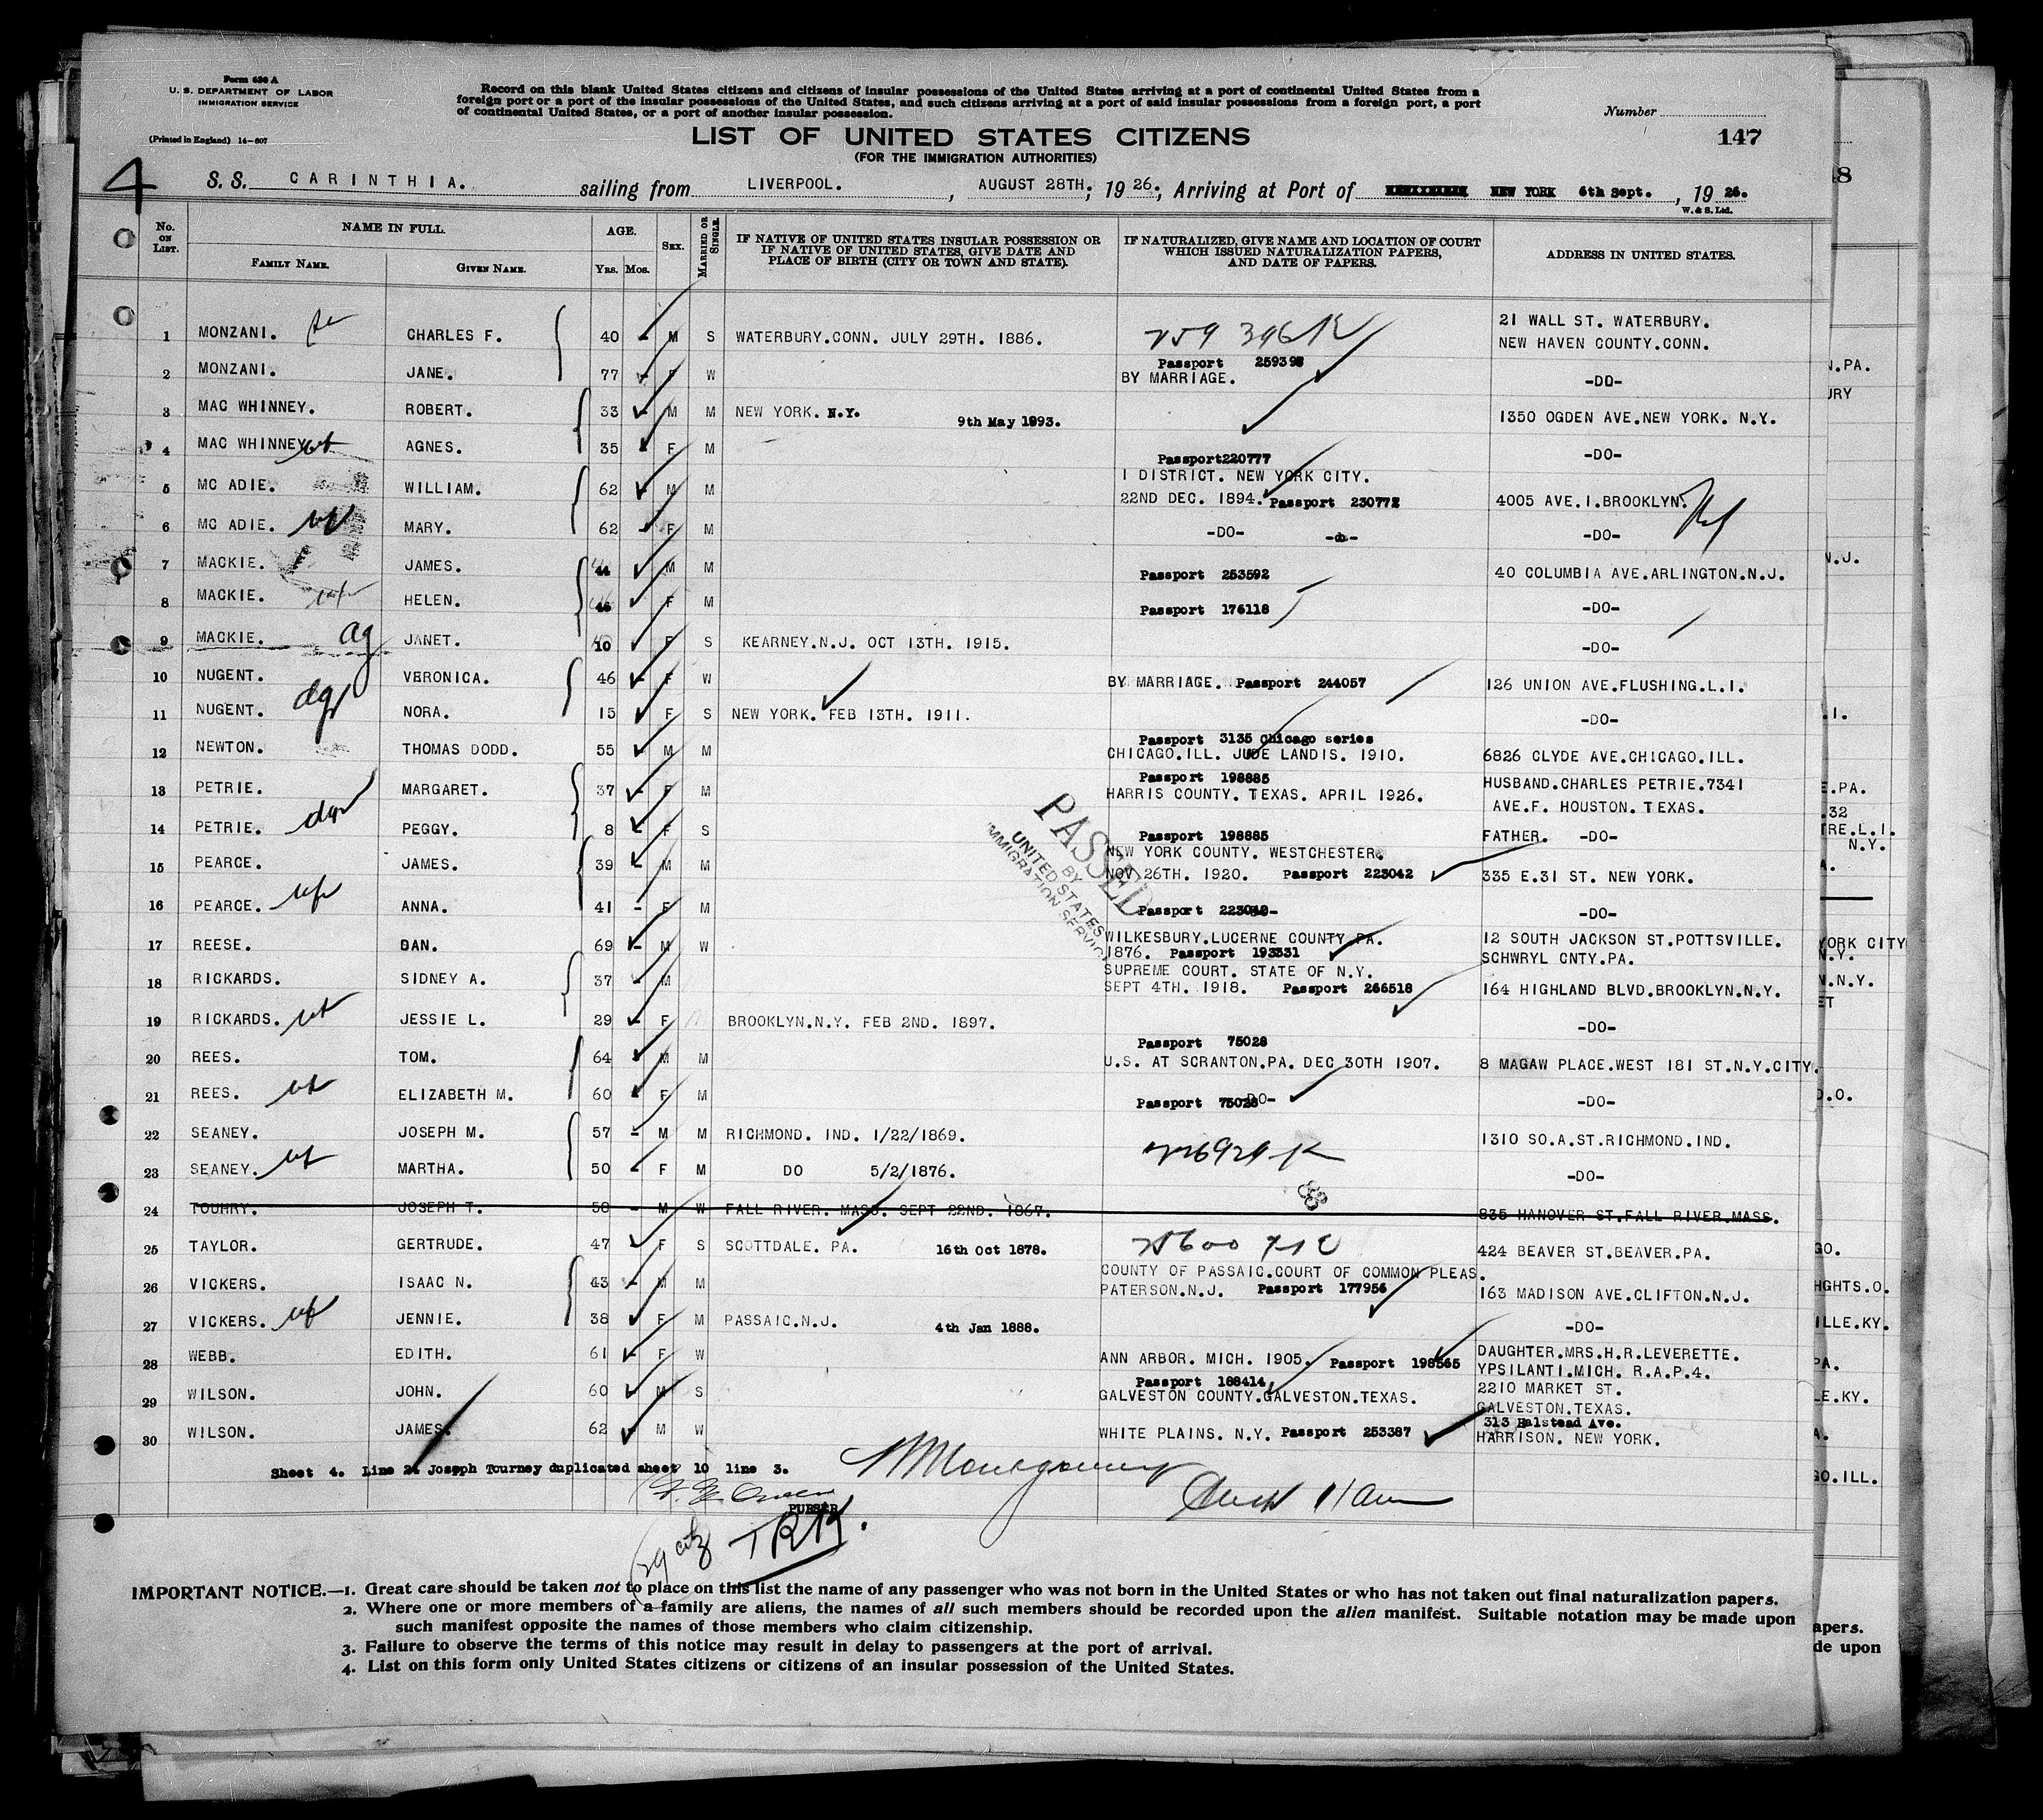 Form 630 A
U. S. DEPARTMENT OF LABOR
IMMIGRATION SERVICE
(Printed in England) 14-607
Record on this blank United States citizens and citizens of insular possessions of the United States arriving at a port of continental United States from a
foreign port or a port of the insular possessions of the United States, and such citizens arriving at a port of said insular possessions from a foreign port, a port
of continental United States, or a port of another insular possession.
Number
LIST OF UNITED STATES CITIZENS
147
(FOR THE IMMIGRATION AUTHORITIES)
4
S. S. CARINTHIA. sailing from LIVERPOOL. , AUGUST 28TH; 1926; Arriving at Port of NEW YORK 6th Sept. , 1926.
W. & S. Ltd.
No. ON LIST. NAME IN FULL. AGE. SEX. MARRIED OR SINGLE. IF NATIVE OF UNITED STATES INSULAR POSSESSION OR IF NATIVE OF UNITED STATES, GIVE DATE AND PLACE OF BIRTH (CITY OR TOWN AND STATE). IF NATURALIZED, GIVE NAME AND LOCATION OF COURT WHICH ISSUED NATURALIZATION PAPERS, AND DATE OF PAPERS. ADDRESS IN UNITED STATES.
FAMILY NAME. GIVEN NAME. YRS. MOS.
1 MONZANI. CHARLES F. 40 - M S WATERBURY.CONN. JULY 29TH. 1886. 21 WALL ST. WATERBURY.
NEW HAVEN COUNTY.CONN.
Passport 25939
2 MONZANI. JANE. 77 - F W BY MARRIAGE. -DO-
3 MAC WHINNEY. ROBERT. 33 - M M NEW YORK. N.Y. 9th May 1893. 1350 OGDEN AVE.NEW YORK. N.Y.
4 MAC WHINNEY AGNES. 35 F M Passport 220777 -DO-
I DISTRICT. NEW YORK CITY.
5 MC ADIE. WILLIAM. 62 M M 22ND DEC. 1894. Passport 230772 4005 AVE.I.BROOKLYN.
6 MC ADIE. MARY. 62 F M -DO- -do- -DO-
7 MACKIE. JAMES. 44 M M Passport 253592 40 COLUMBIA AVE.ARLINGTON.N.J.
8 MACKIE. HELEN. 46 F M Passport 176118 -DO-
9 MACKIE. ag JANET. 10 F S KEARNEY.N.J. OCT 13TH. 1915. -DO-
10 NUGENT. VERONICA. 46 - F W BY MARRIAGE. Passport 244057 126 UNION AVE.FLUSHING.L.I.
11 NUGENT. NORA. 15 F S NEW YORK. FEB 13TH. 1911. -DO-
Passport 3135 Chicago series
12 NEWTON. THOMAS DODD. 55 M M CHICAGO.ILL. JUDE LANDIS. 1910. 6826 CLYDE AVE.CHICAGO.ILL.
Passport 198885
13 PETRIE. MARGARET. 37 - F M HARRIS COUNTY. TEXAS. APRIL 1926. HUSBAND.CHARLES PETRIE.7341
AVE.F. HOUSTON. TEXAS.
14 PETRIE. PEGGY. 8 - F S Passport 198885 FATHER. -DO-
NEW YORK COUNTY. WESTCHESTER.
15 PEARCE. JAMES. 39 - M M NOV 26TH. 1920. Passport 223042 335 E.31 ST. NEW YORK.
16 PEARCE. ANNA. 41 - F M Passport -DO-
PASSED
BY
UNITED STATES
IMMIGRATION SERVICE
17 REESE. DAN. 69 - M W WILKESBURY.LUCERNE COUNTY PA. 12 SOUTH JACKSON ST.POTTSVILLE.
1876. Passport 193331 SCHWRYL CNTY.PA.
SUPREME COURT. STATE OF N.Y.
18 RICKARDS. SIDNEY A. 37 - M SEPT 4TH. 1918. Passport 266518 164 HIGHLAND BLVD.BROOKLYN.N.Y.
19 RICKARDS. JESSIE L. 29 - F BROOKLYN.N.Y. FEB 2ND. 1897. -DO-
Passport 75028
20 REES. TOM. 64 M M U.S. AT SCRANTON.PA. DEC 30TH 1907. 8 MAGAW PLACE.WEST 181 ST.N.Y.CITY.
21 REES. ELIZABETH M. 60 F M Passport 75028 -DO- -DO-
22 SEANEY. JOSEPH M. 57 - M M RICHMOND. IND. 1/22/1869. 1310 SO.A.ST.RICHMOND.IND.
23 SEANEY. MARTHA. 50 - F M DO 5/2/1876. -DO-
24 TOUHRY. JOSEPH T. 58 - M W FALL RIVER. MASS. SEPT 22ND. 1867. 835 HANOVER ST.FALL RIVER.MASS.
25 TAYLOR. GERTRUDE. 47 - F S SCOTTDALE. PA. 16th Oct 1878. 424 BEAVER ST.BEAVER.PA.
COUNTY OF PASSAIC.COURT OF COMMON PLEAS.
26 VICKERS. ISAAC N. 43 - M M PATERSON.N.J. Passport 177956 163 MADISON AVE.CLIFTON.N.J.
27 VICKERS. JENNIE. 38 F M PASSAIC.N.J. 4th Jan 1888. -DO-
28 WEBB. EDITH. 61 - F W ANN ARBOR. MICH. 1905. Passport 198565 DAUGHTER.MRS.H.R.LEVERETTE.
YPSILANTI.MICH. R.A.P.4.
Passport 188414
29 WILSON. JOHN. 60 M S GALVESTON COUNTY.GALVESTON.TEXAS. 2210 MARKET ST.
GALVESTON.TEXAS.
30 WILSON. JAMES. 62 M W WHITE PLAINS. N.Y. Passport 253387 313 Halstead Ave.
HARRISON. NEW YORK.
Sheet 4. Line 24 Joseph Tourney duplicated sheet 10 line 3.
PURSER
29 citz
IMPORTANT NOTICE.—1. Great care should be taken not to place on this list the name of any passenger who was not born in the United States or who has not taken out final naturalization papers.
2. Where one or more members of a family are aliens, the names of all such members should be recorded upon the alien manifest. Suitable notation may be made upon
such manifest opposite the names of those members who claim citizenship.
3. Failure to observe the terms of this notice may result in delay to passengers at the port of arrival.
4. List on this form only United States citizens or citizens of an insular possession of the United States.